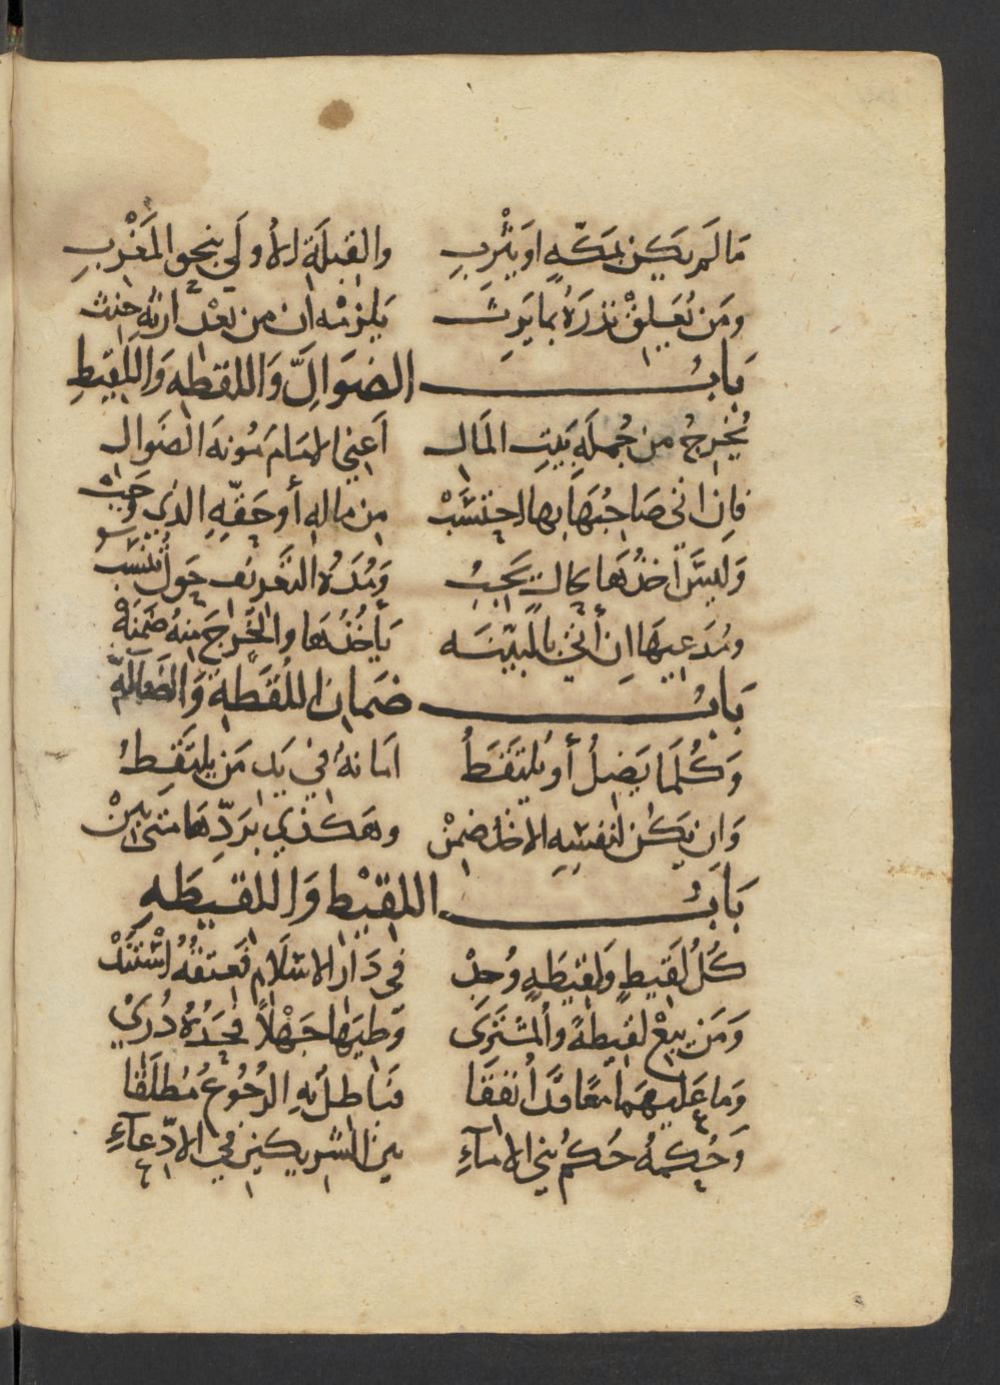 مَا لَم يكن بمَكّهٍ او يَثْربِ والقِبلَة الأولَي نحو المَغْربِ
ومَن يُعَلِقْ نذرَهُ بما يَرِث يَلزمْه ان من بَعْد ارثِهِ حنث
بَابُ الضوَالِّ وَاللقطه وَاللَقيطِ
يُخرجُ من جُملَهِ بَيتِ المَال اَعني الامَام مَئونهَ الضَوال
فاِن اتي صَاحبُهَا بها احتسَبْ من مالهِ أو حَقّهِ الذي وَجَبْ
وَليسَ اخذُهَا بحالٍ يَجبُ وَمُدَهُ التَعريف حَولٌ
ومُدَعيهَا اِن أتي بالبَيّنَه يَأخُذُهَا والخُرَاجَ منهُ ضَمنَهْ
بَابُ ضمَان اللُقَطَهِ وَالضَالّهّ
وَكُلَمَا يَضِلُ أو يُلتقَطُ اَمَانهُ في يَد مَن يلتَقِطُ
وَان يَكن لنفسِهِ الاخذ ضمنْ وهَكذي بردِّهَا متي
بَابُ اللقيْط وَاللقيطَهِ
كلُ لَقيطٍ وَلقيطَهٍ وُجدْ في دَار الاسْلَام فعتقُهُ
وَمَن يبعْ لقيطَهً والمُشتَرَى وَطيَها جَهْلاً فحَدُهُ دُريْ
وَمَا عَليهمَا مَعًا قَد اُنفقَا فبَاطلٌ بهِ الرُجُوعُ مُطلَقا
وَحُكمهُ حُكمُ بَني الاماَءِ بين الشريكين في الادّعآءِ